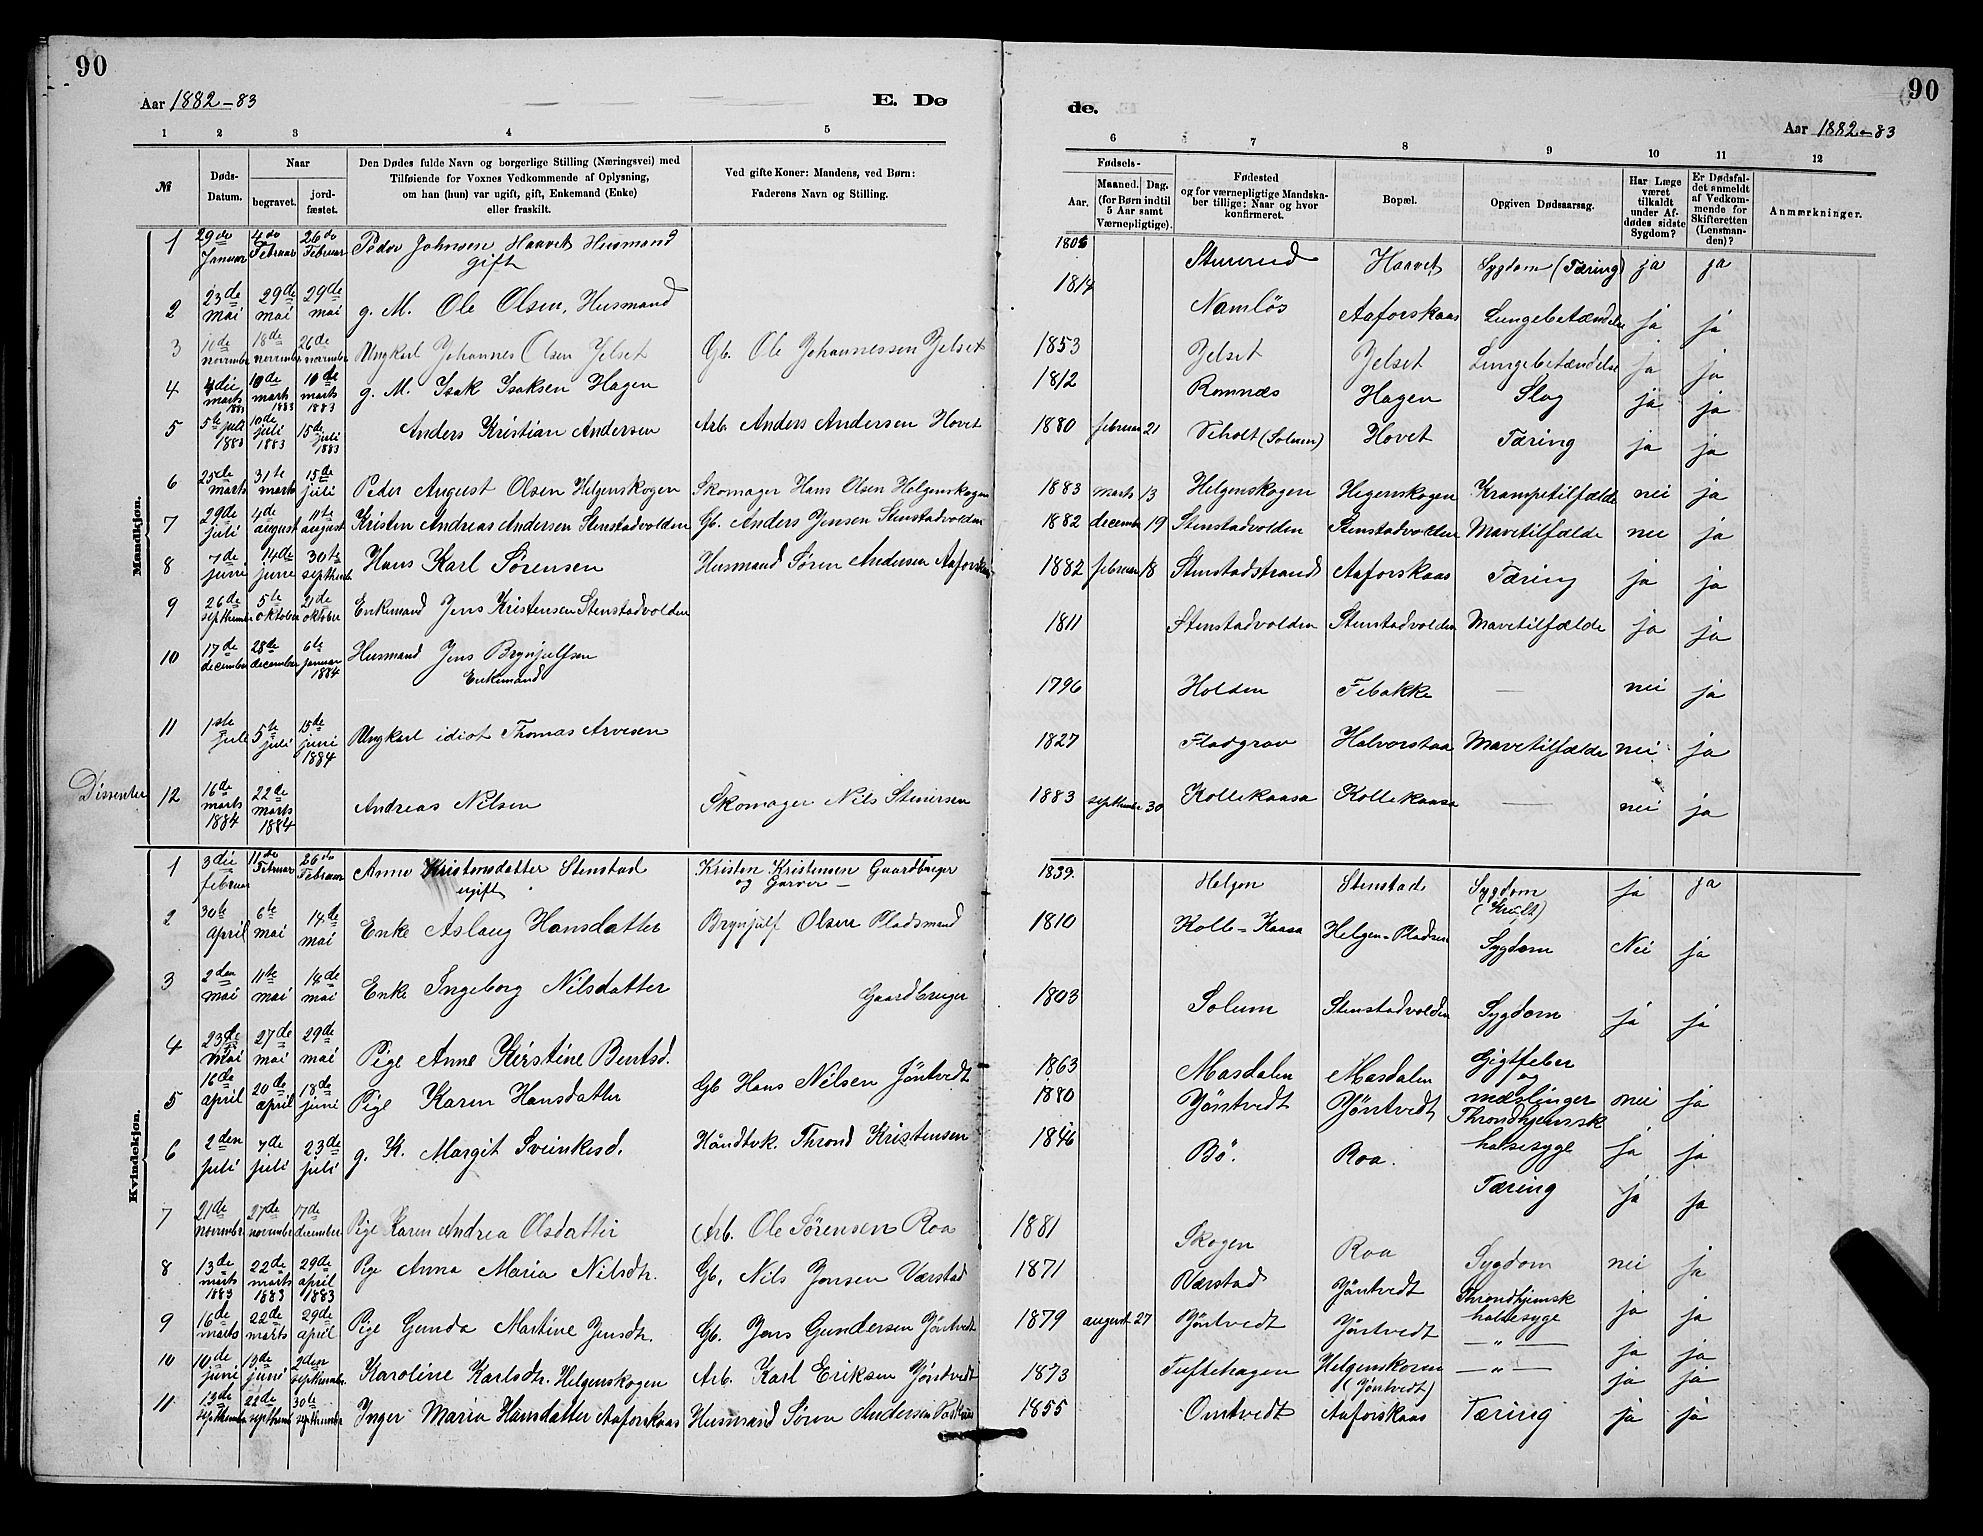 90
Aar 1882-83
E. Dø
1 2 3 4 5
№
Døds-Datum.
Naar
begravet.
jord-fæstet.
Den Dødes fulde Navn og borgerlige Stilling (Næringsvei) med
Tilføiende for Voxnes Vedkommende af Oplysning,
om han (hun) var ugift, gift, Enkemand (Enke)
eller fraskilt.
Ved gifte Koner: Mandens, ved Børn:
Faderens Navn og Stilling.
Mandkjøn.
1 29de Januar 4de Februar 26de Februar Peder Johnsen Haavet Husmand
gift
2 23de mai 29de mai 29de mai g. M. Ole Olsen, Husmand
3 11de november 18de november 26de november Ungkarl Johannes Olsen Jelset Gb. Ole Johannessen Jelset
4 4die marts 1883 10de marts 1883 10de marts 1883 g. M. Isak Isaksen Hagen
5 5te juli 1883 10de juli 1883 15de juli 1883 Anders Kristian Andersen Arb. Anders Andersen Hovet
6 25de marts 31te marts 15de juli Peder August Olsen Helgenskogen Skomager Hans Olsen Helgenskogen
7 29de juli 4de august 11te august Kristen Andreas Andersen Stenstadvolden Gb. Anders Jensen Stenstadvolden
8 7de juni 14de june 30te septhemb Hans Karl Sørensen Husmand Søren Andersen Aaforskaas
9 26de septhember 5te oktober 21de oktober Enkemand Jens Kristensen Stenstadvolden
10 17de december 28de december 6te januar 1884 Husmand Jens Brynjulfsen
Enkemand
11 1ste juli 5te juli 15de juni 1884 Ungkarl idiot Thomas Arvesen
Dissenter 12 16de marts 1884 22de marts 1884 Andreas Nilsen Skomager Nils Stenersen
Kvindekjøn.
1 3die februar 11de Februar 26de Februar Anne Kristensdatter Stenstad Kristen Kristensen Gaardbruger
ugift og Garver
2 30te April 6te mai 14de mai Enke Aslaug Hansdatter Brynjulf Olsen Pladsmand
3 2den mai 11te mai 14de mai Enke Ingeborg Nilsdatter Gaardbruger
4 23de mai 27de mai 29de mai Pige Anne Kirstine Bentsd.
5 16de april 20de april 18de juni Pige Karen Hansdatter Gb Hans Nilsen Jöntvedt
6 2den juli 7de juli 23de juli g. K. Margit Sveinkesd. Håndtvk. Thrond Kristensen
7 21de november 27de november 17de december Pige Karen Andrea Olsdatter Arb. Ole Sørensen Roa
8 13de marts 1883 22de marts 1883 29de april 1883 Pige Anna Maria Nilsdtr. Gb. Nils Jensen Værstad
9 16de marts 22de marts 29de april Pige Gunda Martine Jensdtr. Gb. Jens Gundersen Jöntvedt
10 10de juni 19de juni 2den septhember Karoline Karlsdtr. Helgenskogen Arb. Karl Eriksen Jöntvedt
11 13de septhember 22de septhemb 30te septhember Inger Maria Hansdatter Aaforskaas Husmand Søren Andersen
90
de.
Aar 1882-83
6 7 8 9 10 11 12
Fødsels-
Aar.
Maaned. Dag.
(for Børn indtil
5 Aar samt
Værnepligtige).
Fødested
og for værnepligtige Mandska-
ber tillige: Naar og hvor
konfirmeret.
Bopæl.
Opgiven Dødsaarsag.
Har Læge
været
tilkaldt
under Af-
dødes sidste
Sygdom?
Er Dødsfal-
det anmeldt
af Vedkom-
mende for
Skifteretten
(Lensman-
den)?
Anmærkninger.
1806 Haavet Sygdom (Tæring) ja ja
1814 Namløs Aaforskaas Lungebetændelse ja ja
1853 Jelset Jelset Lungebetændelse ja ja
1812 Romnæs Hagen Slag ja ja
1880 februar 21 Veholt (Solum) Hovet Tæring ja ja
1883 marts 13 Helgenskogen Hegenskogen Krampetilfælde nei ja
1882 december 19 Stenstadvolden Stenstadvolden Mavetilfælde nei ja
1882 februar 18 Stenstadstrand Aaforskaas Tæring ja ja
1811 Stenstadvolden Stenstadvolden Mavetilfælde ja ja
1796 Holden Febakke — nei ja
1827 Fladgrav Halvorstaa Mavetilfælde nei ja
1883 septhember 30 Kollekaasa Kollekaasa — nei ja
1839. Helgen Stenstad Sygdom ja ja
1810 Kolle-Kaasa Helgen-Pladsen Sygdom Nei ja
1803 Solum Stenstadvolden Sygdom ja ja
1863 Masdalen Masdalen Gigtfeber
og
1880 Jöntvedt Jöntvedt mæslinger nei ja
Throndhjemsk
1846 Bö. Roa. halsesyge ja ja
Tæring ja ja
1881 Skogen Roa Sygdom nei ja
1871 Værstad Jöntvedt Throndhjemsk
halsesyge ja ja
1879 august 27 Jöntvedt Jöntvedt — " — ja ja
1873 Tuftehagen Helgenskoven — " — ja ja
(Jöntvedt)
1855 Omtvedt Aaforskaas Tæring ja ja